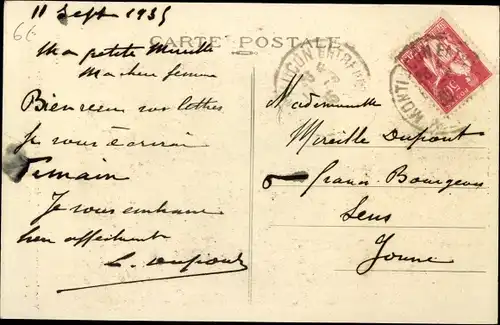 11 Sept 1935
66
CARTE POSTALE
Ma petite Mireille
Ma chere femme
Bien reçu vos lettres
Je vous écrirai
Demain
Je vous embrasse
bien affectueut
L. Dupont
Mademoiselle
Mireille Dupont
6 Grands Bourgeois
Sens
Yonne
MONTL